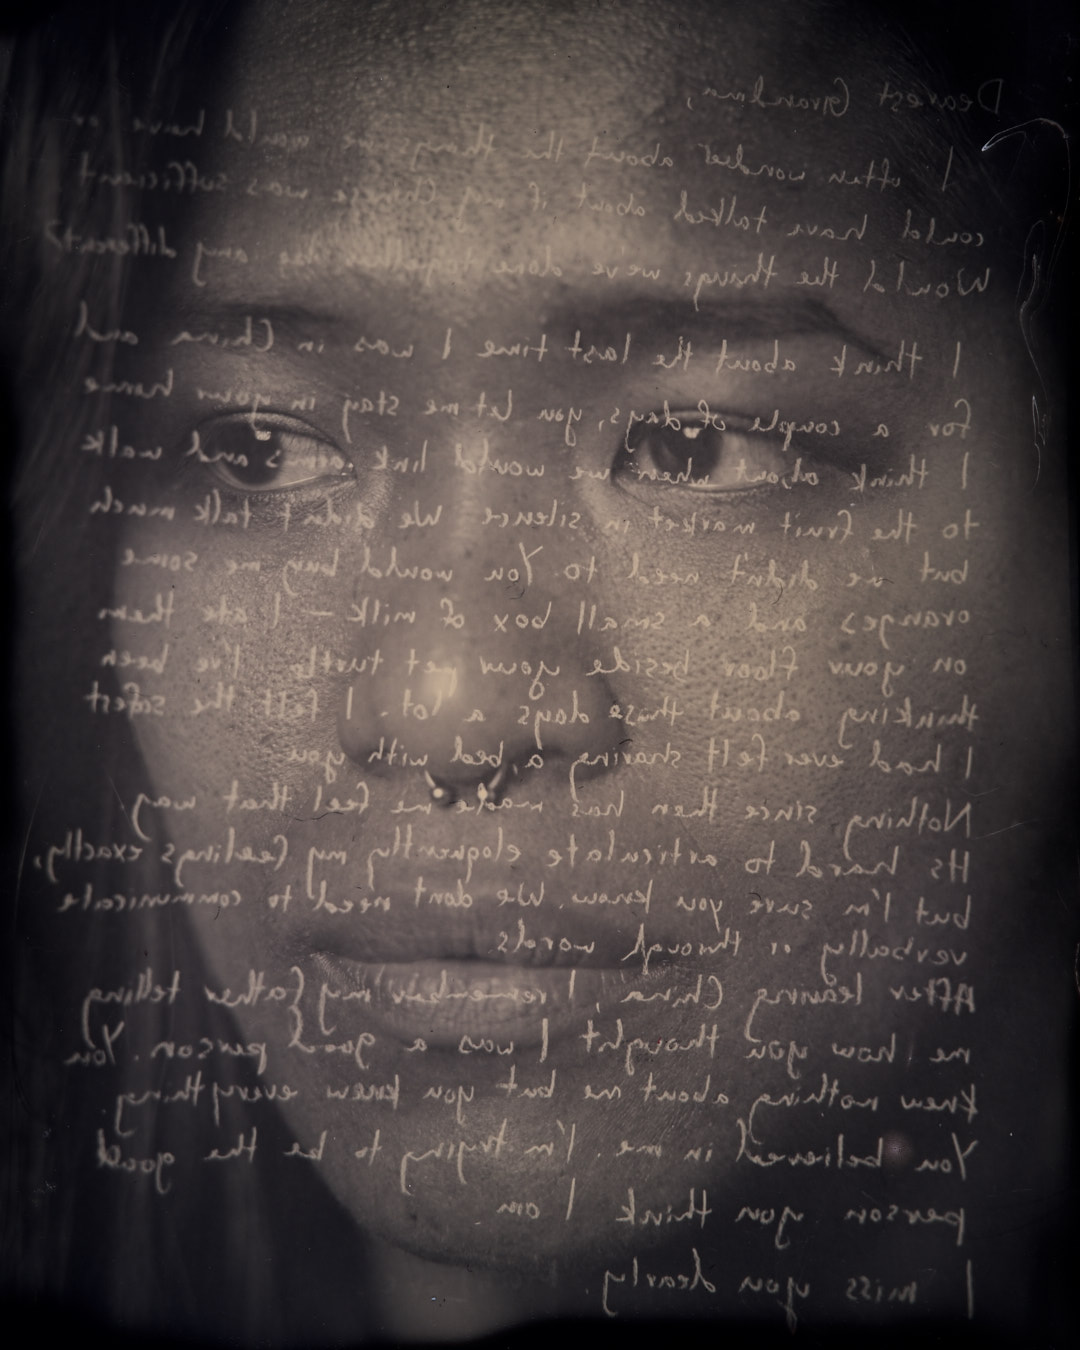 Dearest Grandma,
I often wonder about the things we would have or
could have talked about if my Chinese was sufficient
Would the things we've done together be any different?
I think about the last time I was in China and
for a couple of days, you let me stay in your home
I think about when we would link arms and walk
to the fruit market in silence. We didn't talk much
but we didn't need to. You would buy me some
oranges and a small box of milk — I ate them
on your floor beside your pet turtle. I've been
thinking about those days a lot. I felt the safest
I had ever felt sharing a bed with you
Nothing since then has made me feel that way
Its hard to articulate eloquently my feelings exactly,
but I'm sure you know. We dont need to communicate
verbally or through words
After leaving China, I remember my father telling
me how you thought I was a good person. You
knew nothing about me but you knew everything
You believed in me. I'm trying to be the good
person you think I am
I miss you dearly.